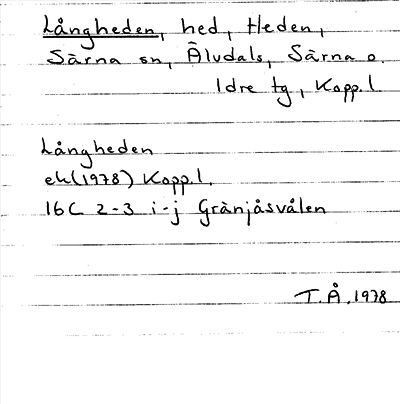 Långheden, hed, Heden,
Särna sn, Älvdals, Särna o.
Idre tg, Kopp.l.
Långheden
ek(1978) Kopp.l.
16C 2-3 i-j Gränjåsvålen
T.Å. 1978